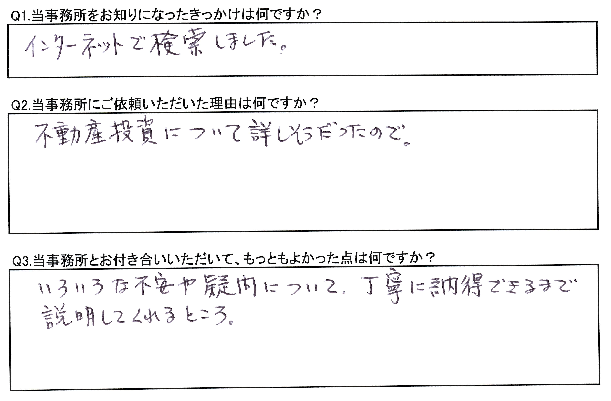 Q1.当事務所をお知りになったきっかけは何ですか？
インターネットで検索しました。
Q2.当事務所にご依頼いただいた理由は何ですか？
不動産投資について詳しそうだったので。
Q3.当事務所とお付き合いいただいて、もっともよかった点は何ですか？
いろいろな不安や疑問について、丁寧に納得できるまで
説明してくれるところ。